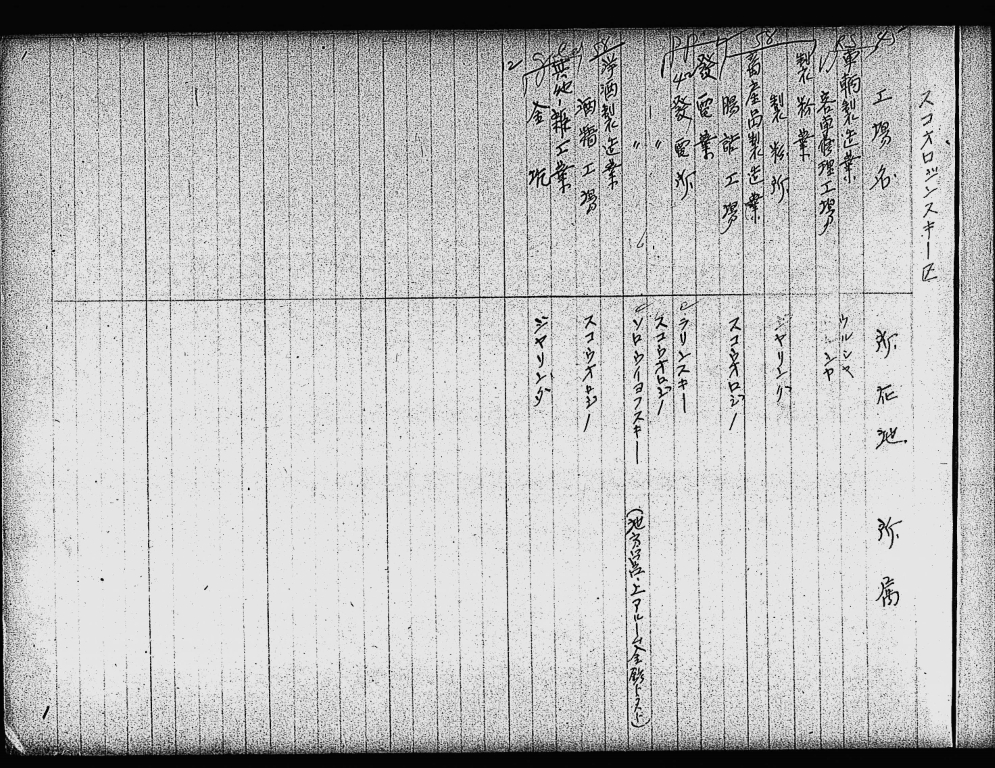 スコオロジンスキー区
工場名 所在地 所属
車輌製造業 ウルシャ
客車修理工場 シヤ
製粉業
製粉所 ジヤリング
畜産品製造業
腸詰工場 スコウオロジノ
發電業
發電所 ラリンスキー
〃 スコウオロジノ
〃 ソロウイヨフスキー (地方営・上アルーム金鉱トラスト)
洋酒製造業
酒精工場 スコウオロジノ
其他ノ雜工業
金坑 ジヤリング